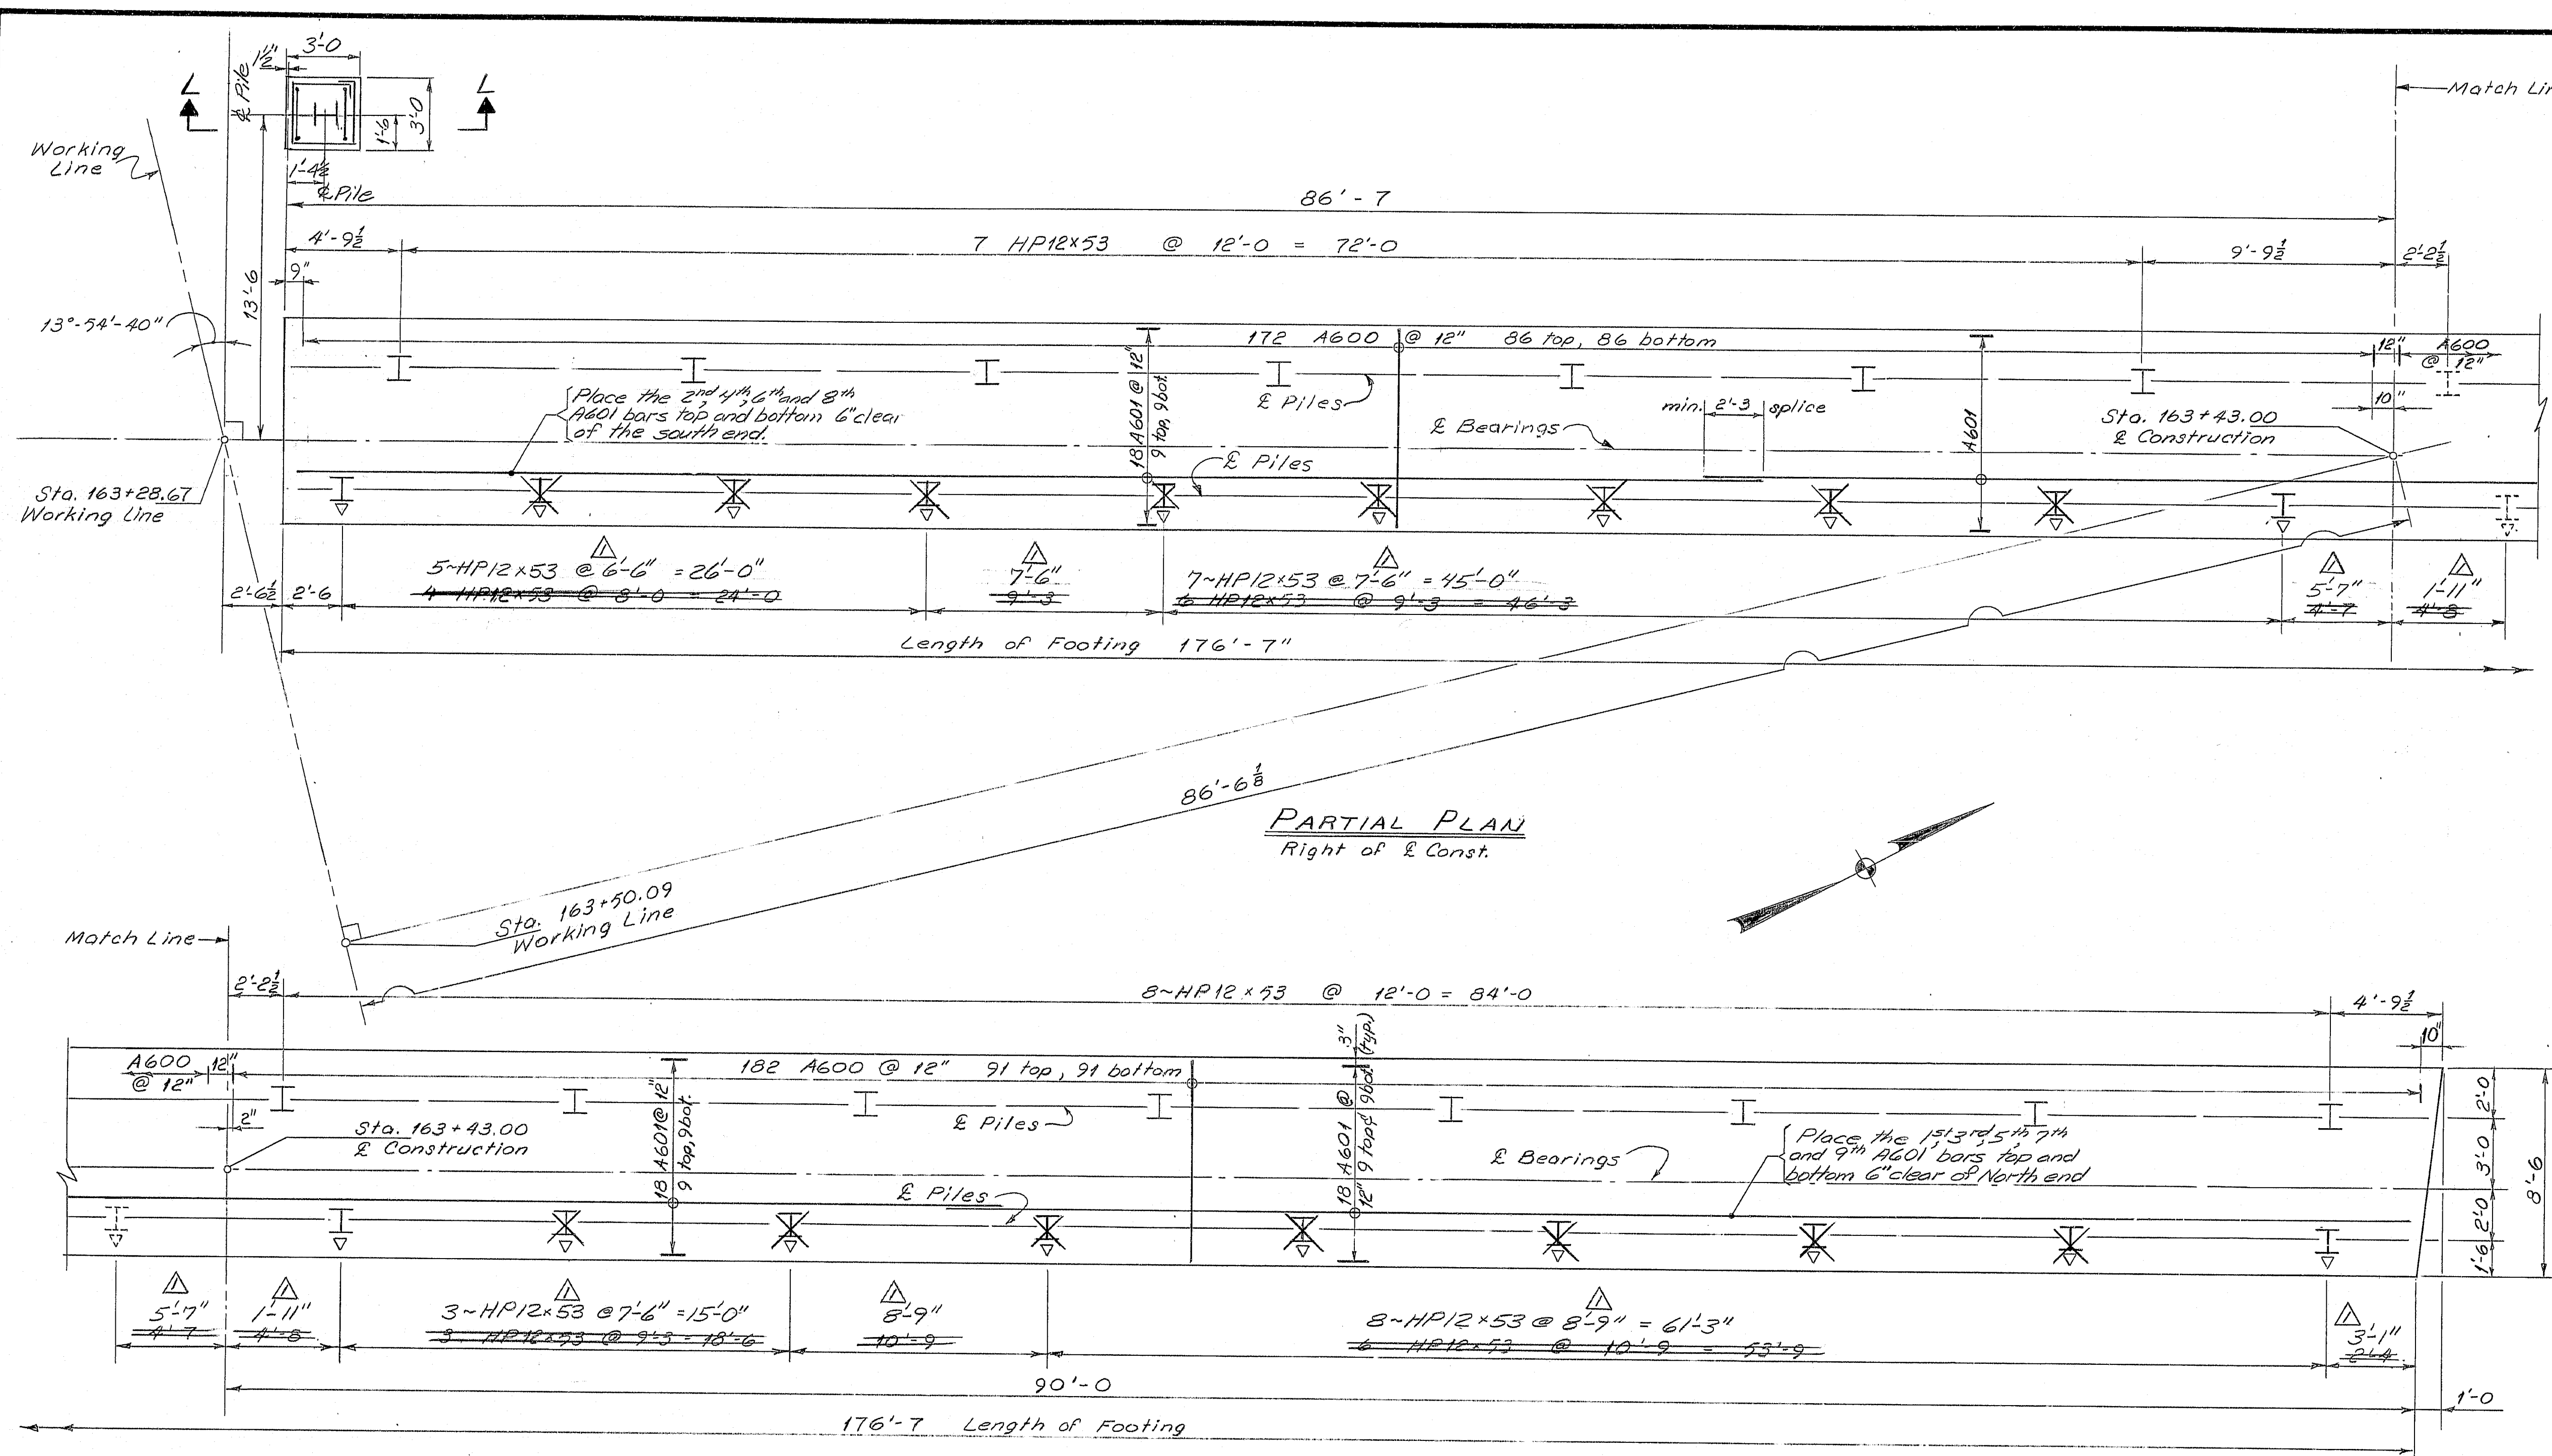 3'-0
1½"
℄ Pile
L
L
3'-0
1'-6
1'-4½
℄ Pile
Match Lin
Working
Line
86'-7
4'-9½
7 HP12×53 @ 12'-0 = 72'-0
9'-9½
2'-2½
9"
13'-6
13°-54'-40"
172 A600 @ 12" 86 top, 86 bottom
12"
A600
@ 12"
10"
Place the 2nd, 4th, 6th and 8th
A601 bars top and bottom 6" clear
of the south end.
18 A601 @ 12"
9 top, 9 bot.
℄ Piles
℄ Bearings
min. 2'-3 splice
A601
Sta. 163+43.00
℄ Construction
℄ Piles
Sta. 163+28.67
Working Line
1
5~HP12×53 @ 6'-6" = 26'-0"
4 HP12×53 @ 8'-0 = 24'-0
1
7'-6"
9'-3
1
7~HP12×53 @ 7'-6" = 45'-0"
6 HP12×53 @ 9'-3 = 46'-3
1
5'-7"
4'-7
1
1'-11"
4'-8
2'-6½
2'-6
Length of Footing 176'-7"
86'-6⅛
PARTIAL PLAN
Right of ℄ Const.
Sta. 163+50.09
Working Line
Match Line
2'-2½
8~HP12×53 @ 12'-0 = 84'-0
4'-9½
10"
A600
@ 12"
12"
182 A600 @ 12" 91 top, 91 bottom
3"
(typ.)
2"
Sta. 163+43.00
℄ Construction
18 A601 @ 12"
9 top, 9 bot.
℄ Piles
18 A601 @
12" 9 top & 9 bot.
℄ Bearings
Place the 1st, 3rd, 5th, 7th
and 9th A601 bars top and
bottom 6" clear of North end
℄ Piles
2'-0
3'-0
2'-0
1'-6
8'-6
1
5'-7"
4'-7
1
1'-11"
4'-8
1
3~HP12×53 @ 7'-6" = 15'-0"
3 HP12×53 @ 9'-3 = 18'-6
1
8'-9"
10'-9
1
8~HP12×53 @ 8'-9" = 61'-3"
6 HP12×53 @ 10'-9 = 53'-9
1
3'-1"
2'-4
90'-0
1'-0
176'-7 Length of Footing